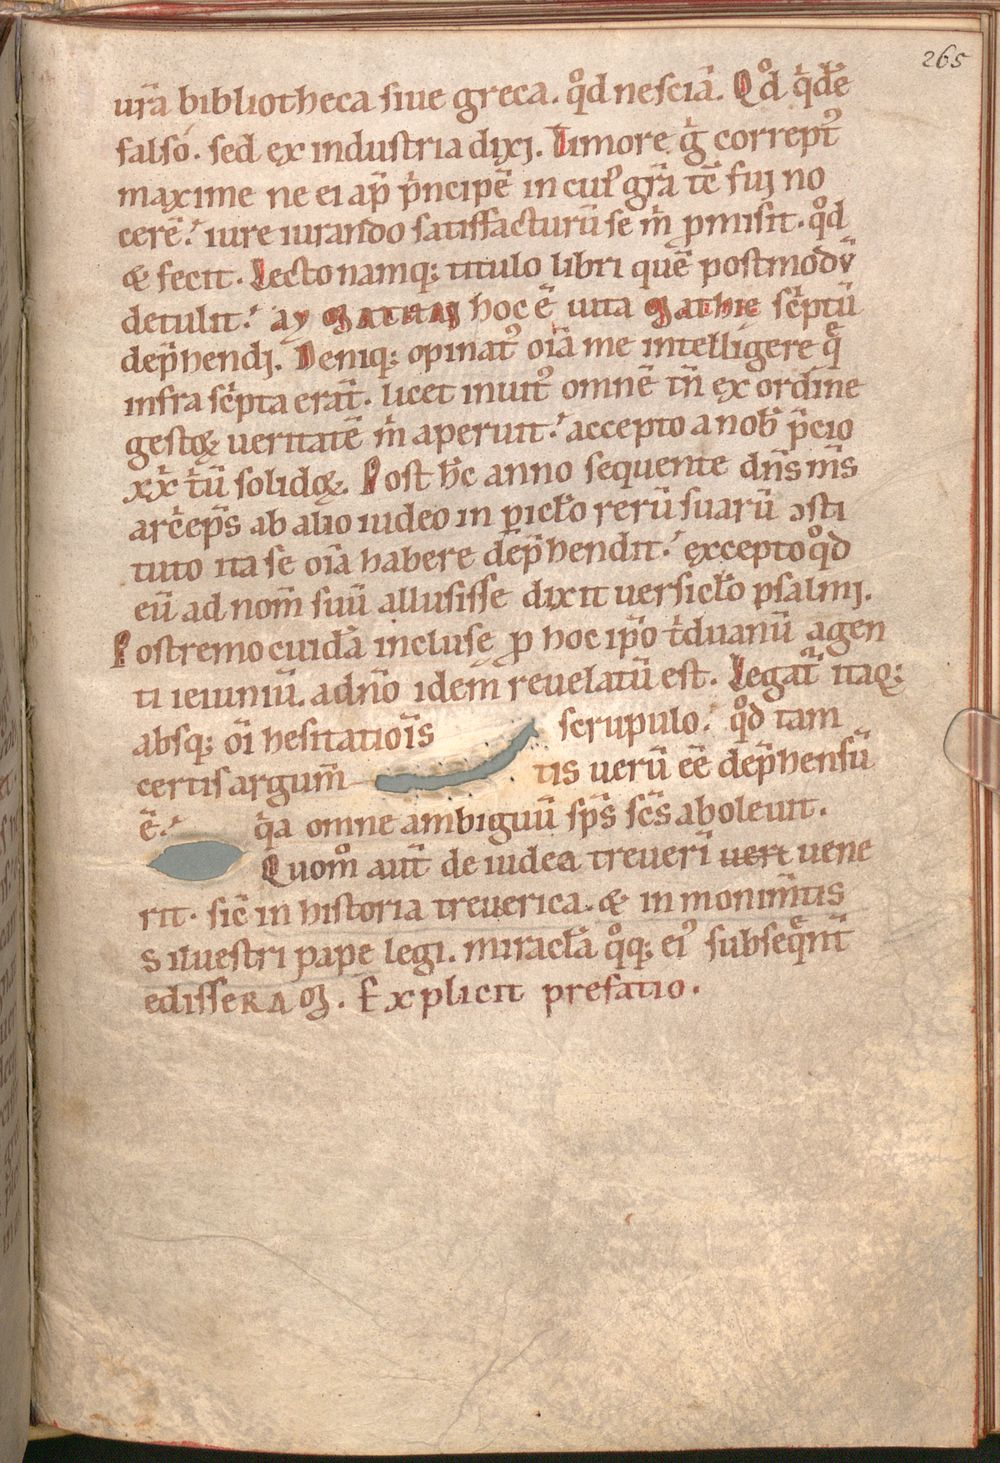 265
ur̄a bibliotheca siue greca. qͦd nesciā. Qͦd q̇dē
falsō. sed ex industria dixi. Timore ġ correptꝰ
maxime ne ei ap̄ p̍ncipē in cuiꝰ gr̄a tc̄ fui no
cere᷒. iure iurando satisfacturū se m̍ ꝓmisit. qͦd
& fecit. Lecto namq; titulo libri quē postmodū
detulit. hoc ē uita Mathie sc̍ptū
dep̄hendi. Deniq; opinatꝰ oīa me intelligere q̄
infra sc̍pta erāt. licet inuitꝰ omnē tn̄ ex ordine
gestoꝝ ueritatē m̍ aperuit. accepto a nob̄ p̄cio
xx̍ tū solidoꝝ. Post h̄c anno sequente dn̄s nr̄s
arc̄ep̄s ab alio iudeo in ꝑicl̄o rerū suarū ɔsti
tuto ita se oīa habere dep̄hendit. excepto qͦd
eū ad nom̄ suū allusisse dixit uersicl̄o psalmi.
Postremo cuidā incluse ꝓ hoc ip̄o t̍duanū agen
ti ieiuniū. a dn̄o idem reuelatū est. Legat̄ itaq;
absq; oī hesitatiōis scrupulo. qͦd tam
certis argum̄ tis uerū eē dep̄hensū
ē. q̍a omne ambiguū sp̄s sc̄s aboleuit.
Quom̊ aut̄ de iudea treueri uert uene
rit. sic̄ in historia treuerica. & in monim̄tis
Siluestri pape legi. miracl̄a qͦq; eiꝰ subseq̄nt̄
edisseram. Explicit prefatio.